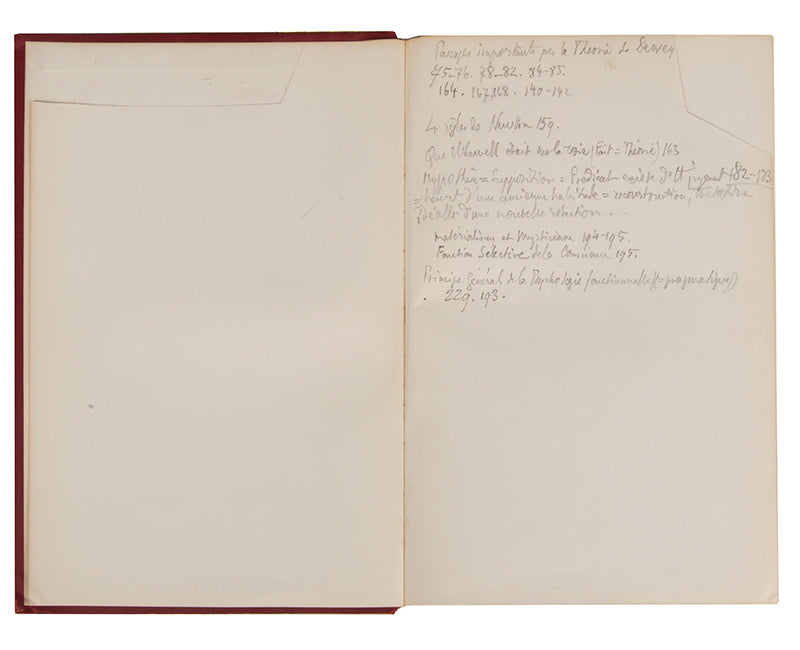 Passages importants pr la Théorie de Dewey
75-76. 78-82. 84-85.
164. 167,168. 140-142
4 règles de Newton 159.
Que Whewell était sur la voie (Fait = Théorie) 163
Hypothèse = Supposition = Prédicat jugement 182-
heurt d'une ancienne habitude = reconstruction, tentative
idéelle d'une nouvelle réaction.
Matérialisme et Mysticisme 194-195.
Fonction Sélective de la Conscience 195.
Principe Général de la Psychologie fonctionnelle (= pragmatique)
229. 193.